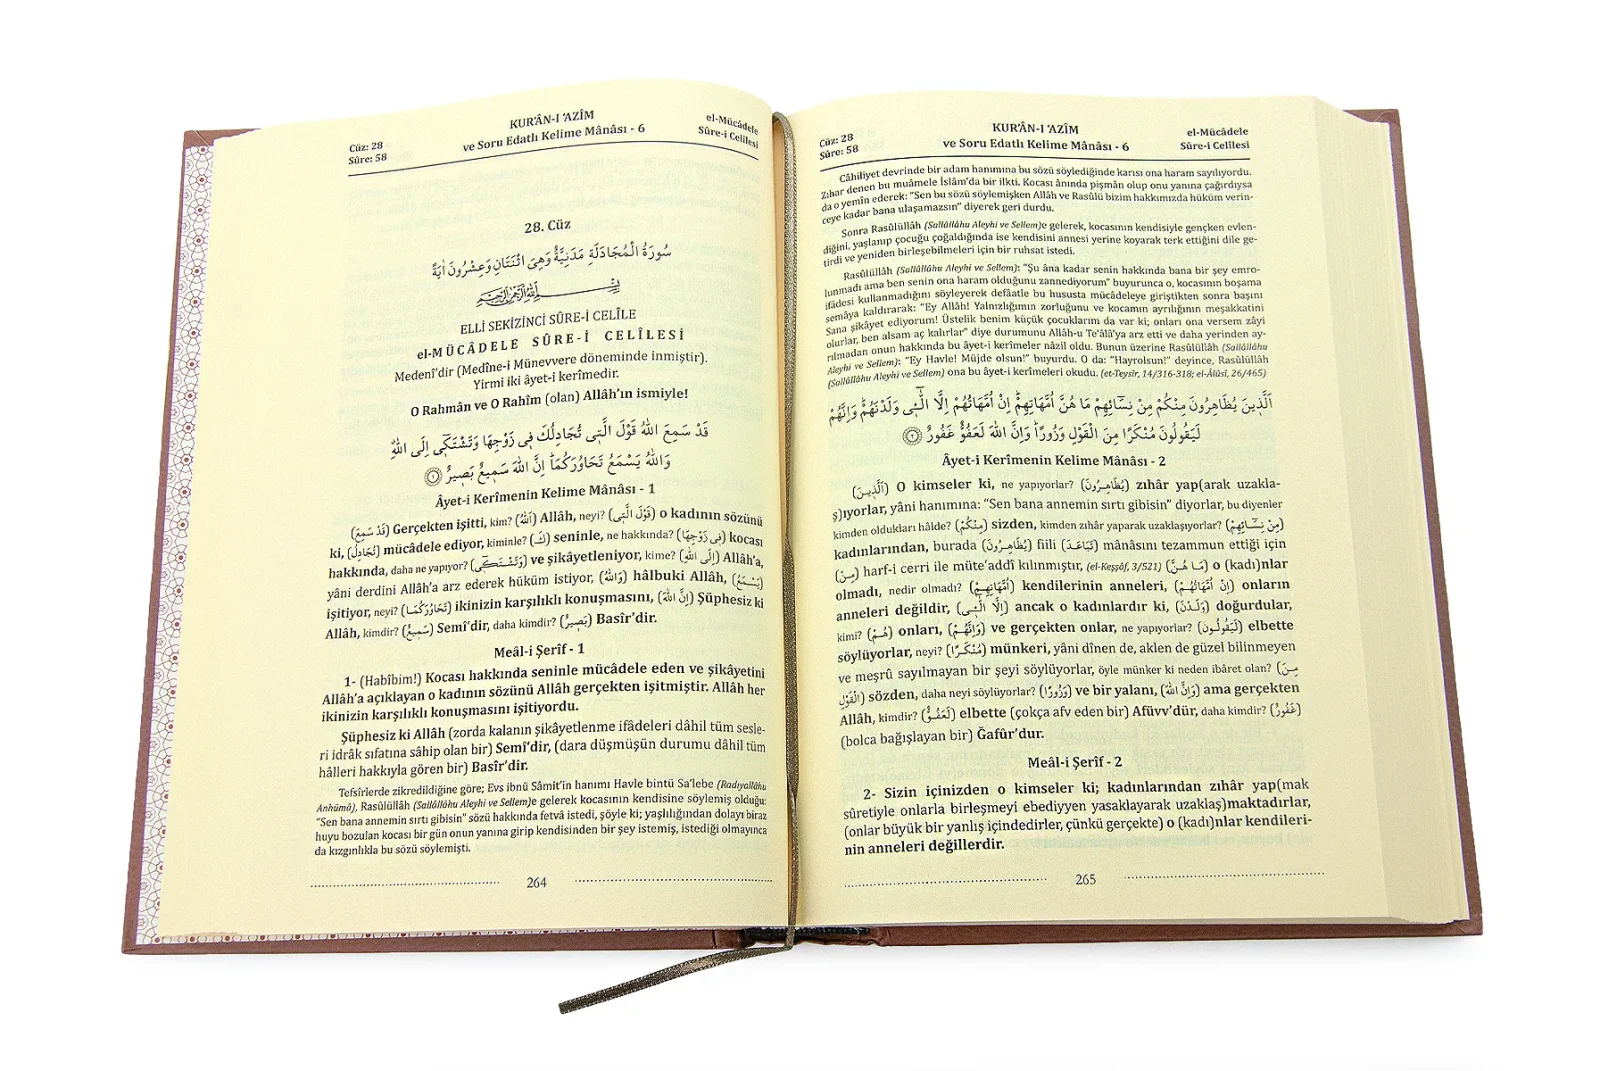 Cüz: 28
Sûre: 58
KUR'ÂN-I 'AZÎM
ve Soru Edatlı Kelime Mânâsı - 6
el-Mücâdele
Sûre-i Celîlesi
28. Cüz
سُورَةُ الْمُجَادَلَةِ مَدَنِيَّةٌ وَهِيَ اثْنَتَانِ وَعِشْرُونَ اٰيَةً
بِسْمِ اللّٰهِ الرَّحْمٰنِ الرَّحِيمِ
ELLİ SEKİZİNCİ SÛRE-İ CELÎLE
el-MÜCÂDELE SÛRE-İ CELÎLESİ
Medenî'dir (Medîne-i Münevvere döneminde inmiştir).
Yirmi iki âyet-i kerîmedir.
O Rahmân ve O Rahîm (olan) Allâh'ın ismiyle!
قَدْ سَمِعَ اللّٰهُ قَوْلَ الَّتِي تُجَادِلُكَ فِي زَوْجِهَا وَتَشْتَكِي اِلَى اللّٰهِ
وَاللّٰهُ يَسْمَعُ تَحَاوُرَكُمَا اِنَّ اللّٰهَ سَمِيعٌ بَصِيرٌ ﴿١﴾
Âyet-i Kerîmenin Kelime Mânâsı - 1
(قَدْ سَمِعَ) Gerçekten işitti, kim? (اَللّٰهُ) Allâh, neyi? (قَوْلَ الَّتِي) o kadının sözünü
ki, (تُجَادِلُ) mücâdele ediyor, kiminle? (كَ) seninle, ne hakkında? (فِي زَوْجِهَا) kocası
hakkında, daha ne yapıyor? (وَتَشْتَكِي) ve şikâyetleniyor, kime? (اِلَى اللّٰهِ) Allâh'a,
yâni derdini Allâh'a arz ederek hüküm istiyor, (وَاللّٰهُ) hâlbuki Allâh, (يَسْمَعُ)
işitiyor, neyi? (تَحَاوُرَكُمَا) ikinizin karşılıklı konuşmasını, (اِنَّ اللّٰهَ) Şüphesiz ki
Allâh, kimdir? (سَمِيعٌ) Semî'dir, daha kimdir? (بَصِيرٌ) Basîr'dir.
Meâl-i Şerîf - 1
1- (Habîbim!) Kocası hakkında seninle mücâdele eden ve şikâyetini
Allâh'a açıklayan o kadının sözünü Allâh gerçekten işitmiştir. Allâh her
ikinizin karşılıklı konuşmasını işitiyordu.
Şüphesiz ki Allâh (zorda kalanın şikâyetlenme ifâdeleri dâhil tüm sesle-
ri idrâk sıfatına sâhip olan bir) Semî'dir, (dara düşmüşün durumu dâhil tüm
hâlleri hakkıyla gören bir) Basîr'dir.
Tefsîrlerde zikredildiğine göre; Evs ibnü Sâmit'in hanımı Havle bintü Sa'lebe (Radıyallâhu
Anhümâ), Rasûlüllâh (Sallâllâhu Aleyhi ve Sellem)e gelerek kocasının kendisine söylemiş olduğu:
"Sen bana annemin sırtı gibisin" sözü hakkında fetvâ istedi, şöyle ki; yaşlılığından dolayı biraz
huyu bozulan kocası bir gün onun yanına girip kendisinden bir şey istemiş, istediği olmayınca
da kızgınlıkla bu sözü söylemişti.
264
Cüz: 28
Sûre: 58
KUR'ÂN-I 'AZÎM
ve Soru Edatlı Kelime Mânâsı - 6
el-Mücâdele
Sûre-i Celîlesi
Câhiliyet devrinde bir adam hanımına bu sözü söylediğinde karısı ona haram sayılıyordu.
Zıhar denen bu muâmele İslâm'da bir ilkti. Kocası ânında pişmân olup onu yanına çağırdıysa
da o yemîn ederek: "Sen bu sözü söylemişken Allâh ve Rasûlü bizim hakkımızda hüküm verin-
ceye kadar bana ulaşamazsın" diyerek geri durdu.
Sonra Rasûlüllâh (Sallâllâhu Aleyhi ve Sellem)e gelerek, kocasının kendisiyle gençken evlen-
diğini, yaşlanıp çocuğu çoğaldığında ise kendisini annesi yerine koyarak terk ettiğini dile ge-
tirdi ve yeniden birleşebilmeleri için bir ruhsat istedi.
Rasûlüllâh (Sallâllâhu Aleyhi ve Sellem): "Şu âna kadar senin hakkında bana bir şey emro-
lunmadı ama ben senin ona haram olduğunu zannediyorum" buyurunca o, kocasının boşama
ifâdesi kullanmadığını söyleyerek defâatle bu hususta mücâdeleye giriştikten sonra başını
semâya kaldırarak: "Ey Allâh! Yalnızlığımın zorluğunu ve kocamın ayrılığının meşakkatini
Sana şikâyet ediyorum! Üstelik benim küçük çocuklarım da var ki; onları ona versem zâyi
olurlar, ben alsam aç kalırlar" diye durumunu Allâh-u Te'âlâ'ya arz etti ve daha yerinden ay-
rılmadan onun hakkında bu âyet-i kerîmeler nâzil oldu. Bunun üzerine Rasûlüllâh (Sallâllâhu
Aleyhi ve Sellem): "Ey Havle! Müjde olsun!" buyurdu. O da: "Hayrolsun!" deyince, Rasûlüllâh
(Sallâllâhu Aleyhi ve Sellem) ona bu âyet-i kerîmeleri okudu. (et-Teysîr, 14/316-318; el-Âlûsî, 26/465)
اَلَّذِينَ يُظَاهِرُونَ مِنْكُمْ مِنْ نِسَائِهِمْ مَا هُنَّ اُمَّهَاتِهِمْ اِنْ اُمَّهَاتُهُمْ اِلَّا الّٰٓئِي وَلَدْنَهُمْ وَاِنَّهُمْ
لَيَقُولُونَ مُنْكَرًا مِنَ الْقَوْلِ وَزُورًا وَاِنَّ اللّٰهَ لَعَفُوٌّ غَفُورٌ ﴿٢﴾
Âyet-i Kerîmenin Kelime Mânâsı - 2
(اَلَّذِينَ) O kimseler ki, ne yapıyorlar? (يُظَاهِرُونَ) zıhar yap(arak uzakla-
ş)ıyorlar, yâni hanımına: "Sen bana annemin sırtı gibisin" diyorlar, bu diyenler
kimden oldukları hâlde? (مِنْكُمْ) sizden, kimden zıhar yaparak uzaklaşıyorlar? (مِنْ نِسَائِهِمْ)
kadınlarından, burada (يُظَاهِرُونَ) fiili (تَبَاعَدَ) mânâsını tezammun ettiği için
(مِنْ) harf-i cerri ile müte'addî kılınmıştır, (el-Keşşâf, 3/521) (مَا هُنَّ) o (kadı)nlar
olmadı, nedir olmadı? (اُمَّهَاتِهِمْ) kendilerinin anneleri, (اِنْ اُمَّهَاتُهُمْ) onların
anneleri değildir, (اِلَّا الّٰٓئِي) ancak o kadınlardır ki, (وَلَدْنَ) doğurdular,
kimi? (هُمْ) onları, (وَاِنَّهُمْ) ve gerçekten onlar, ne yapıyorlar? (لَيَقُولُونَ) elbette
söylüyorlar, neyi? (مُنْكَرًا) münkeri, yâni dînen de, aklen de güzel bilinmeyen
ve meşrû sayılmayan bir şeyi söylüyorlar, öyle münker ki neden ibâret olan? (مِنَ
الْقَوْلِ) sözden, daha neyi söylüyorlar? (وَزُورًا) ve bir yalanı, (وَاِنَّ اللّٰهَ) ama gerçekten
Allâh, kimdir? (لَعَفُوٌّ) elbette (çokça afv eden bir) Afüvv'dür, daha kimdir? (غَفُورٌ)
(bolca bağışlayan bir) Ğafûr'dur.
Meâl-i Şerîf - 2
2- Sizin içinizden o kimseler ki; kadınlarından zıhar yap(mak
sûretiyle onlarla birleşmeyi ebediyyen yasaklayarak uzaklaş)maktadırlar,
(onlar büyük bir yanlış içindedirler, çünkü gerçekte) o (kadı)nlar kendileri-
nin anneleri değillerdir.
265